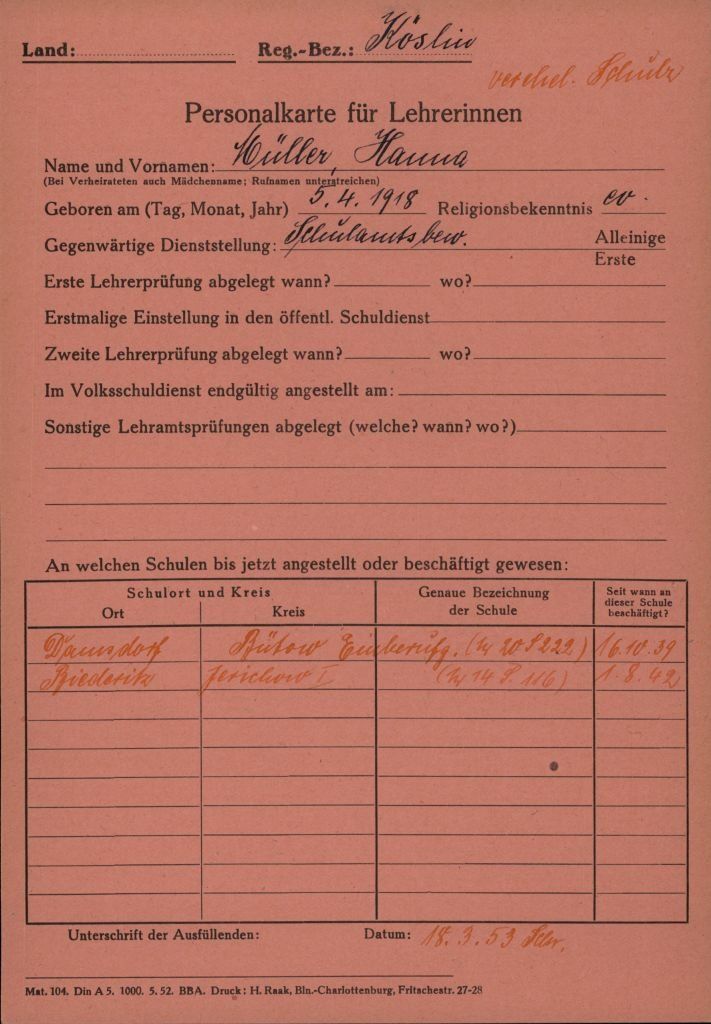 Land: Reg.-Bez.: Köslin
verehel. Schulz
Personalkarte für Lehrerinnen
Name und Vornamen: Müller, Hanna
(Bei Verheirateten auch Mädchenname; Rufnamen unterstreichen)
Geboren am (Tag, Monat, Jahr) 5.4.1918 Religionsbekenntnis ev.
Gegenwärtige Dienststellung: Schulamtsbew. Alleinige
Erste
Erste Lehrerprüfung abgelegt wann? wo?
Erstmalige Einstellung in den öffentl. Schuldienst
Zweite Lehrerprüfung abgelegt wann? wo?
Im Volksschuldienst endgültig angestellt am:
Sonstige Lehramtsprüfungen abgelegt (welche? wann? wo?)
An welchen Schulen bis jetzt angestellt oder beschäftigt gewesen:
Schulort und Kreis Genaue Bezeichnung der Schule Seit wann an dieser Schule beschäftigt?
Ort Kreis
Damsdorf Bütow Einberufg. (Ztr 20 S 222) 16.10.39
Biederitz Jerichow I (Ztr 14 S. 116) 1.8.42
Unterschrift der Ausfüllenden: Datum: 18.3.53
Mat. 104. Din A 5. 1000. 5. 52. BBA. Druck: H. Raak, Bln.-Charlottenburg, Fritschestr. 27-28